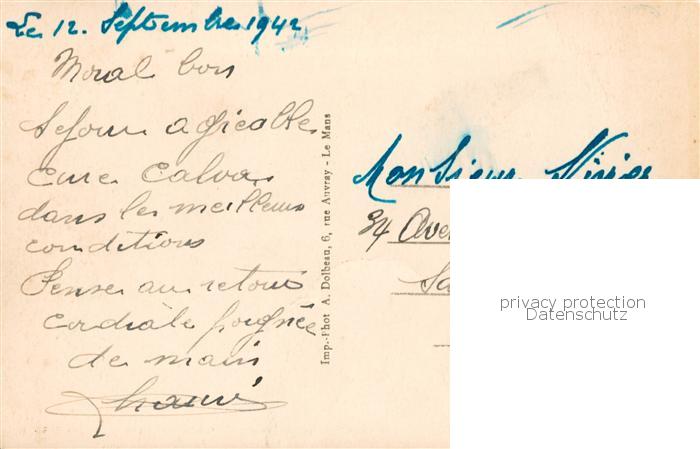 Le 12. Septembre 1942
Moral bon
Sejour agreable
Cure Calva
dans les meilleures
conditions
Penser au retour
Cordiale poignée
de main
Imp.-Phot A. Dolbeau, 6, rue Auvray - Le Mans
Monsieur
34 Ave
privacy protection
Datenschutz